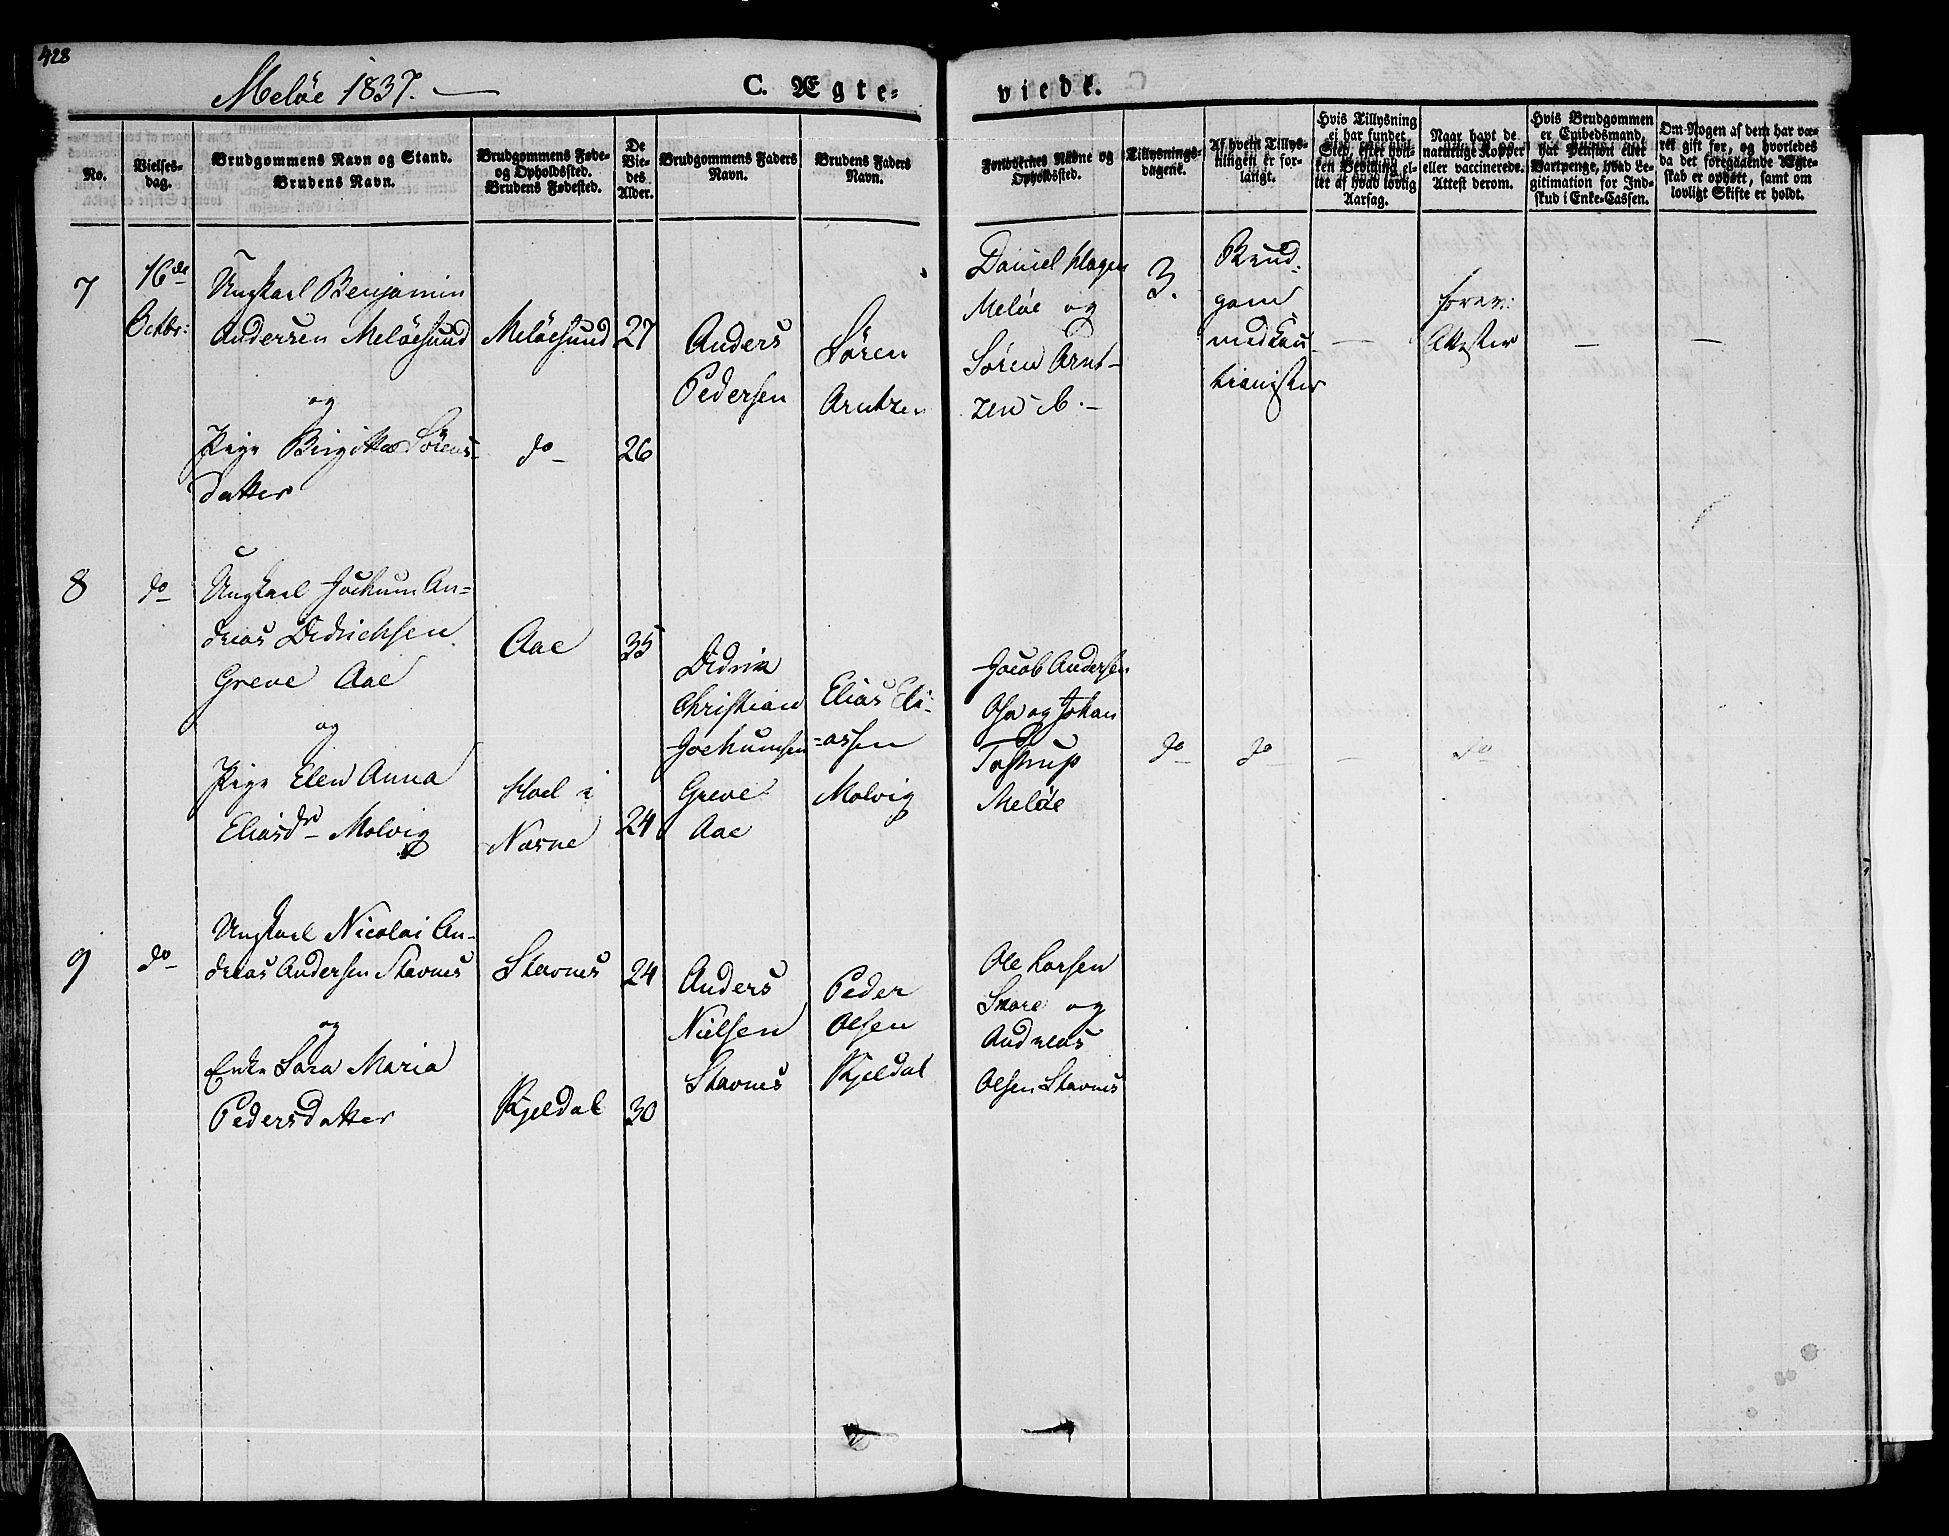 428
Meløe 1837. —
C. Ægte-
viede.
No.
Vielses-
dag.
Brudgommens Navn og Stand.
Brudens Navn.
Brudgommens Føde-
og Opholdssted.
Brudens Fødested.
De
Vie-
des
Alder.
Brudgommens Faders
Navn.
Brudens Faders
Navn.
Forlovernes Navne og
Opholdssted.
Tillysnings-
dagene.
Af hvem Tillys-
ningen er for-
langt.
Hvis Tillysning
ei har fundet
Sted, efter hvil-
ken Bevilling el-
ler af hvad lovlig
Aarsag.
Naar havt de
naturlige Kopper
eller vaccinerede.
Attest derom.
Hvis Brudgommen
er Embedsmand,
har Pension eller
Vartpenge, hvad Le-
gitimation for Ind-
skud i Enke-Cassen.
Om Nogen af dem har væ-
ret gift før, og hvorledes
da det foregaaende Ægte-
skab er ophørt, samt om
lovligt Skifte er holdt.
7
16de
Octbr:
Ungkarl Benjamin
Andersen Meløesund
og
Pige Birgitta Sørens-
datter
Meløesund
do
27
26
Anders
Pedersen
Søren
Arntzen
Daniel Hagen
Meløe og
Søren Arnt-
zen ib. —
3.
Brud-
gom
med Cau-
tionister
—
frem:
Attester
—
—
8
do
Ungkarl Jochum An-
dreas Didrichsen
Greve Aae
og
Pige Elen Anna
Eliasdr Molvig
Aae
Hoel i
Næsne
35
24
Didrik
Christian
Jochumsen
Greve
Aae
Elias Eli-
-assen
Molvig
Jacob Andersen
og Johan
Tostrup
Meløe
do
do
—
do
9
do
Ungkarl Nicolai An-
dreas Andersen Stavnes
og
Enke Sara Maria
Pedersdatter
Stavnes
Kjeldal
24
30
Anders
Nielsen
Stavnes
Peder
Olsen
Kjeldal
Ole Larsen
Skare og
Andreas
Olsen Stavnes